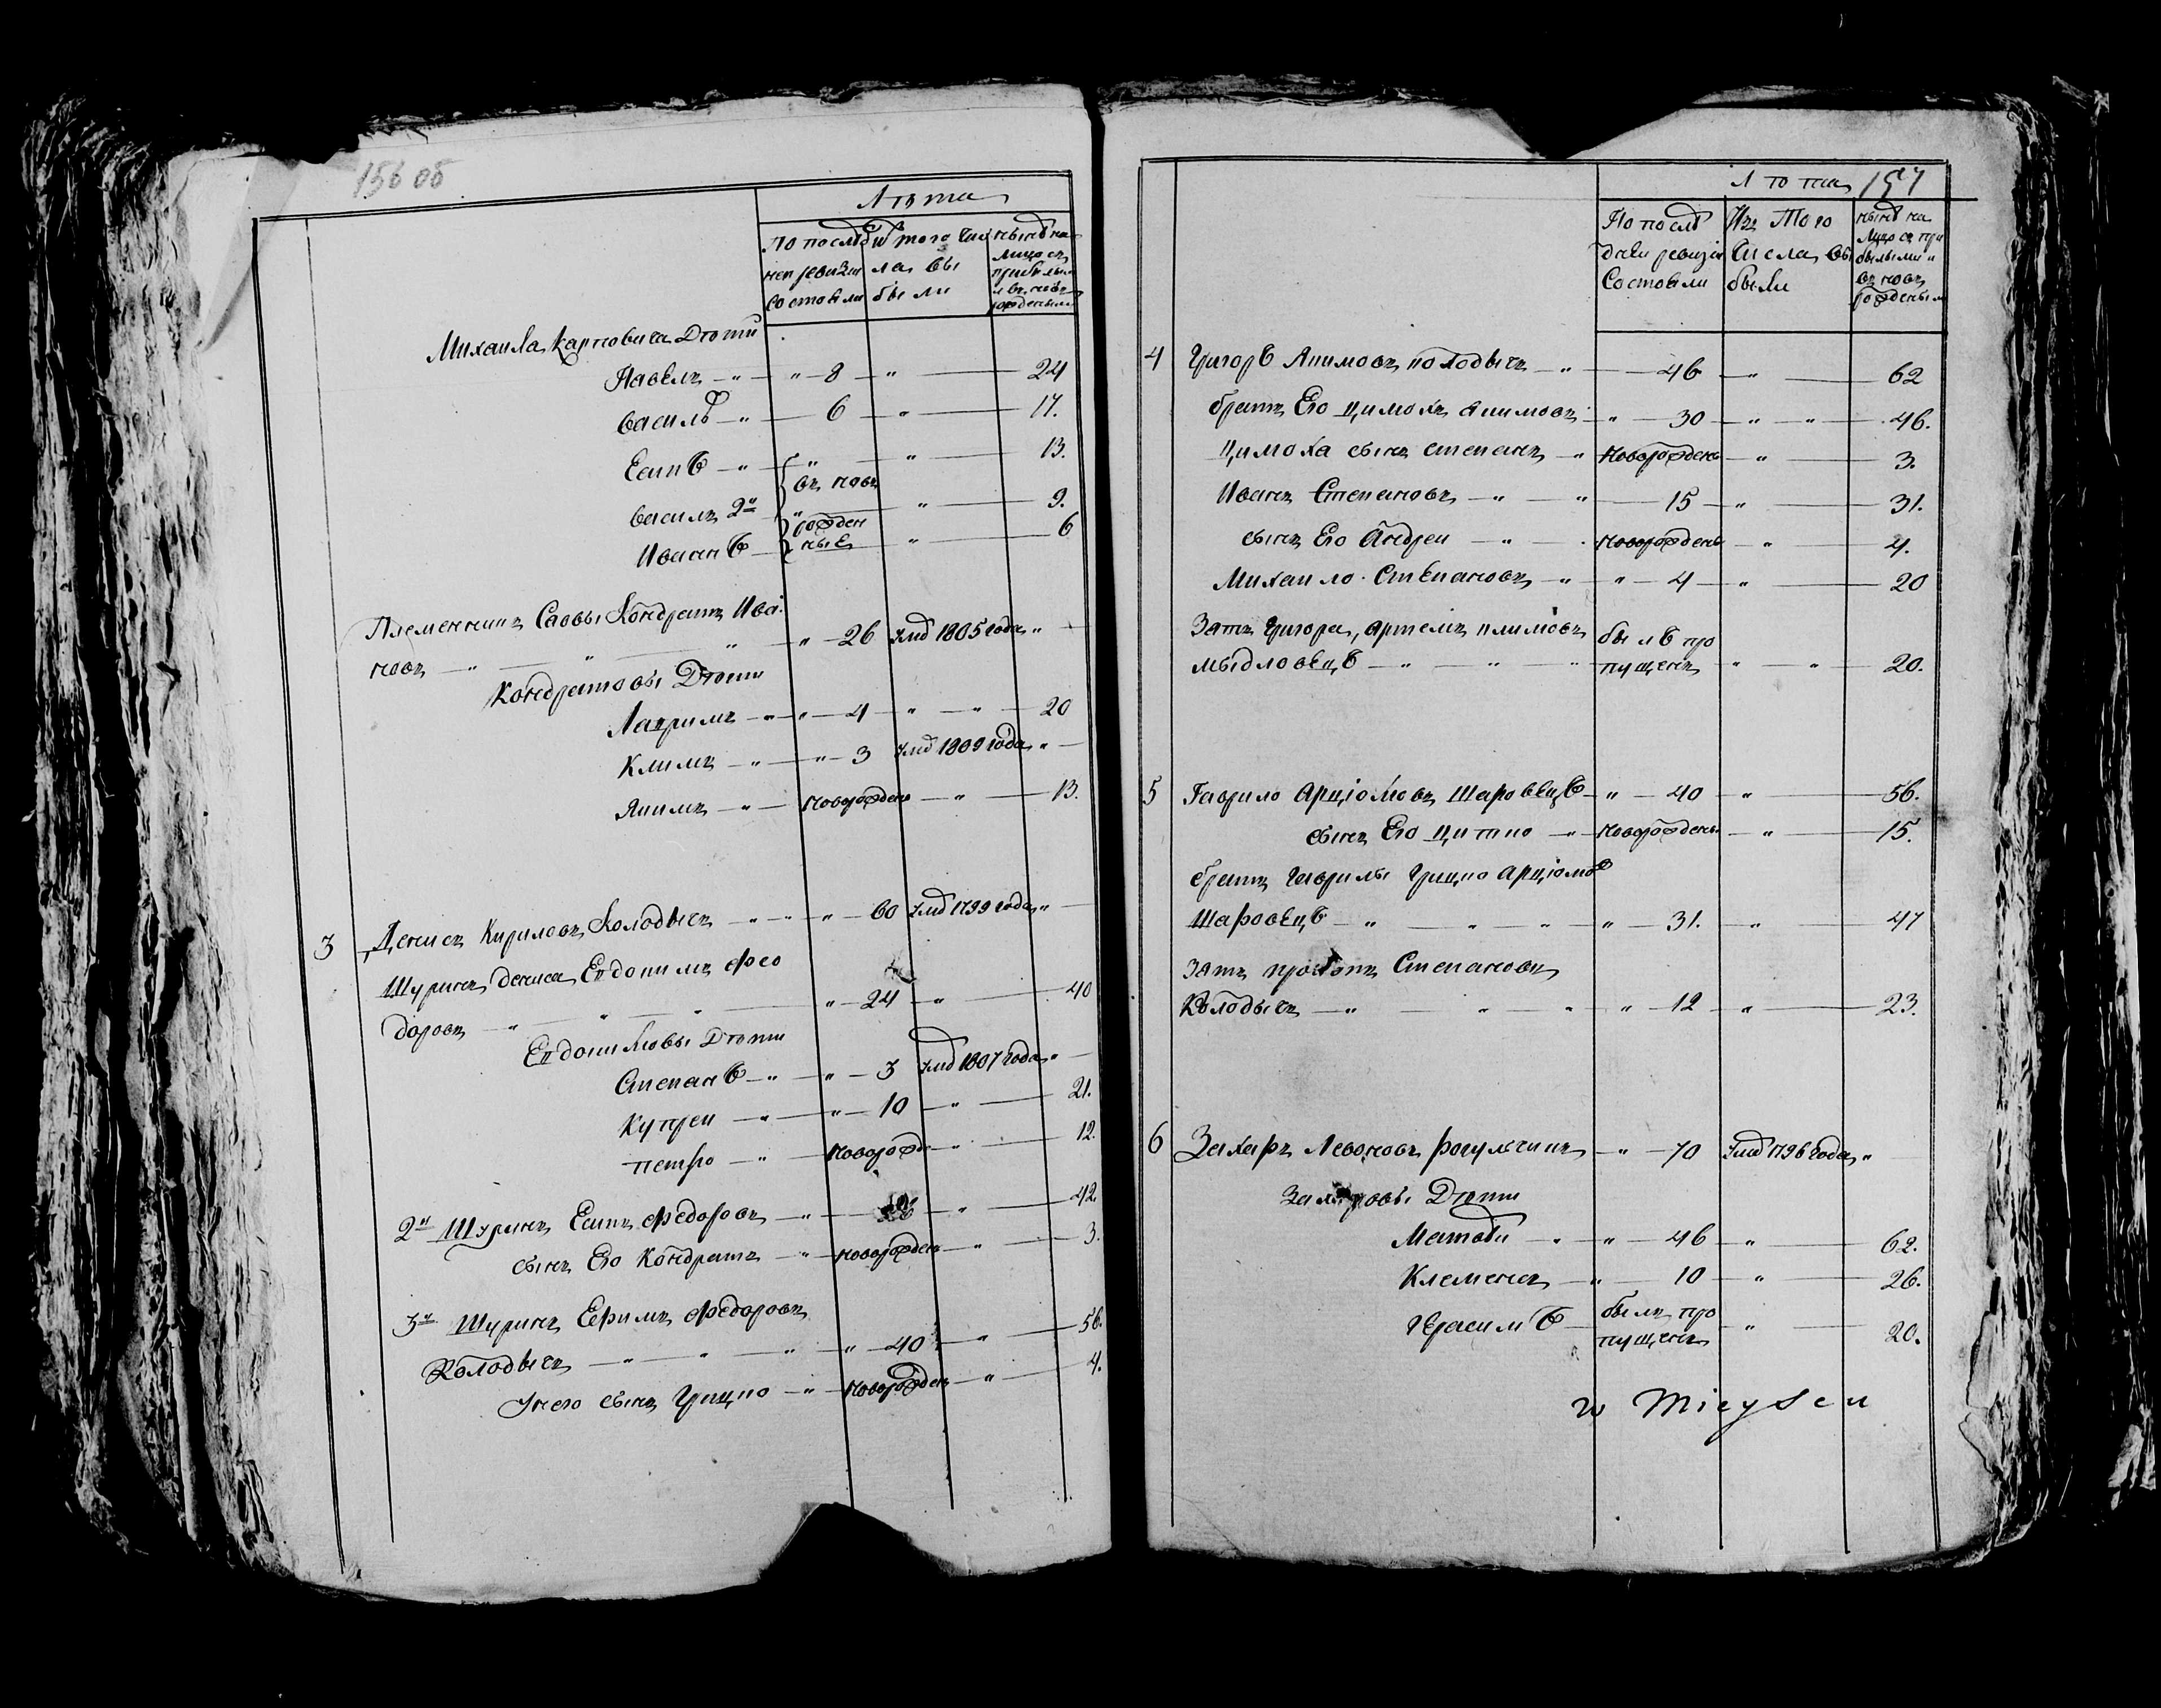 156 об
Лѣта
По послѣд изъ того чис нынѣ на
ней ревизіи ла вы лицо съ
состояли были прибылы
и въ новъ
рожденыи
Михаила Карповича Дѣти
Павелъ 8 24
Василь 6 17.
Есипъ въ новъ 13.
Василь 2й рожден 9.
Иванъ ные 6
Племенникъ Саввы Кондратъ Ива
новъ 26 Умѣ 1805 года
Кондратовы Дѣти
Лавримъ 4 20
Климъ 3 Умѣ 1809 года
Якимъ Новорожденъ 13.
3 Денисъ Кириловъ Колодычъ 60 Умѣ 1799 года
Шуринъ Дениса Евдокимъ Фео
доровъ 24 40
Евдокимовы Дѣти
Степанъ 3 Умѣ 1807 года
Купрей 10 21.
Петро Новорожд 12.
2й Шуринъ Есипъ Федоровъ 26 42.
сынъ Его Кондратъ новорожденъ 3.
3й Шуринъ Ефимъ Федоровъ
Колодычъ 40 56.
Унего сынъ Грицко новорожденъ 4.
Лѣта 157
По послѣ Изъ Того ныне на
дней ревизіи Числа вы лицо съ при
состояли были былыми и
въ новъ
рожденым
4 Григорѣ Якимовъ Колодычъ 46 62
братъ Его Цимохъ Якимовъ 30 46.
Цимоха сынъ Степанъ Новорожденъ 3.
Иванъ Степановъ 15 31.
сынъ Его Андрей Новорожденъ 4.
Михайло Степановъ 4 20
Зать Григора, Артемъ Климовъ былъ про
Мыдловецъ пущенъ 20.
5 Гаврило Арціомовъ Шаровецъ 40 56.
сынъ Его Цитко Новорожденъ 15.
братъ Гаврилы Грицко Арціомов
Шаровецъ 31. 47
Зать Прокопъ Степановъ
Колодычъ 12 23.
6 Захаръ Левоновъ Рогульчикъ 70 Умѣ 1796 года
Захаровы Дѣти
Матвѣй 46 62.
Клеменъ 10 26.
Герасимъ былъ про
пущенъ 20.
w Mieyscu